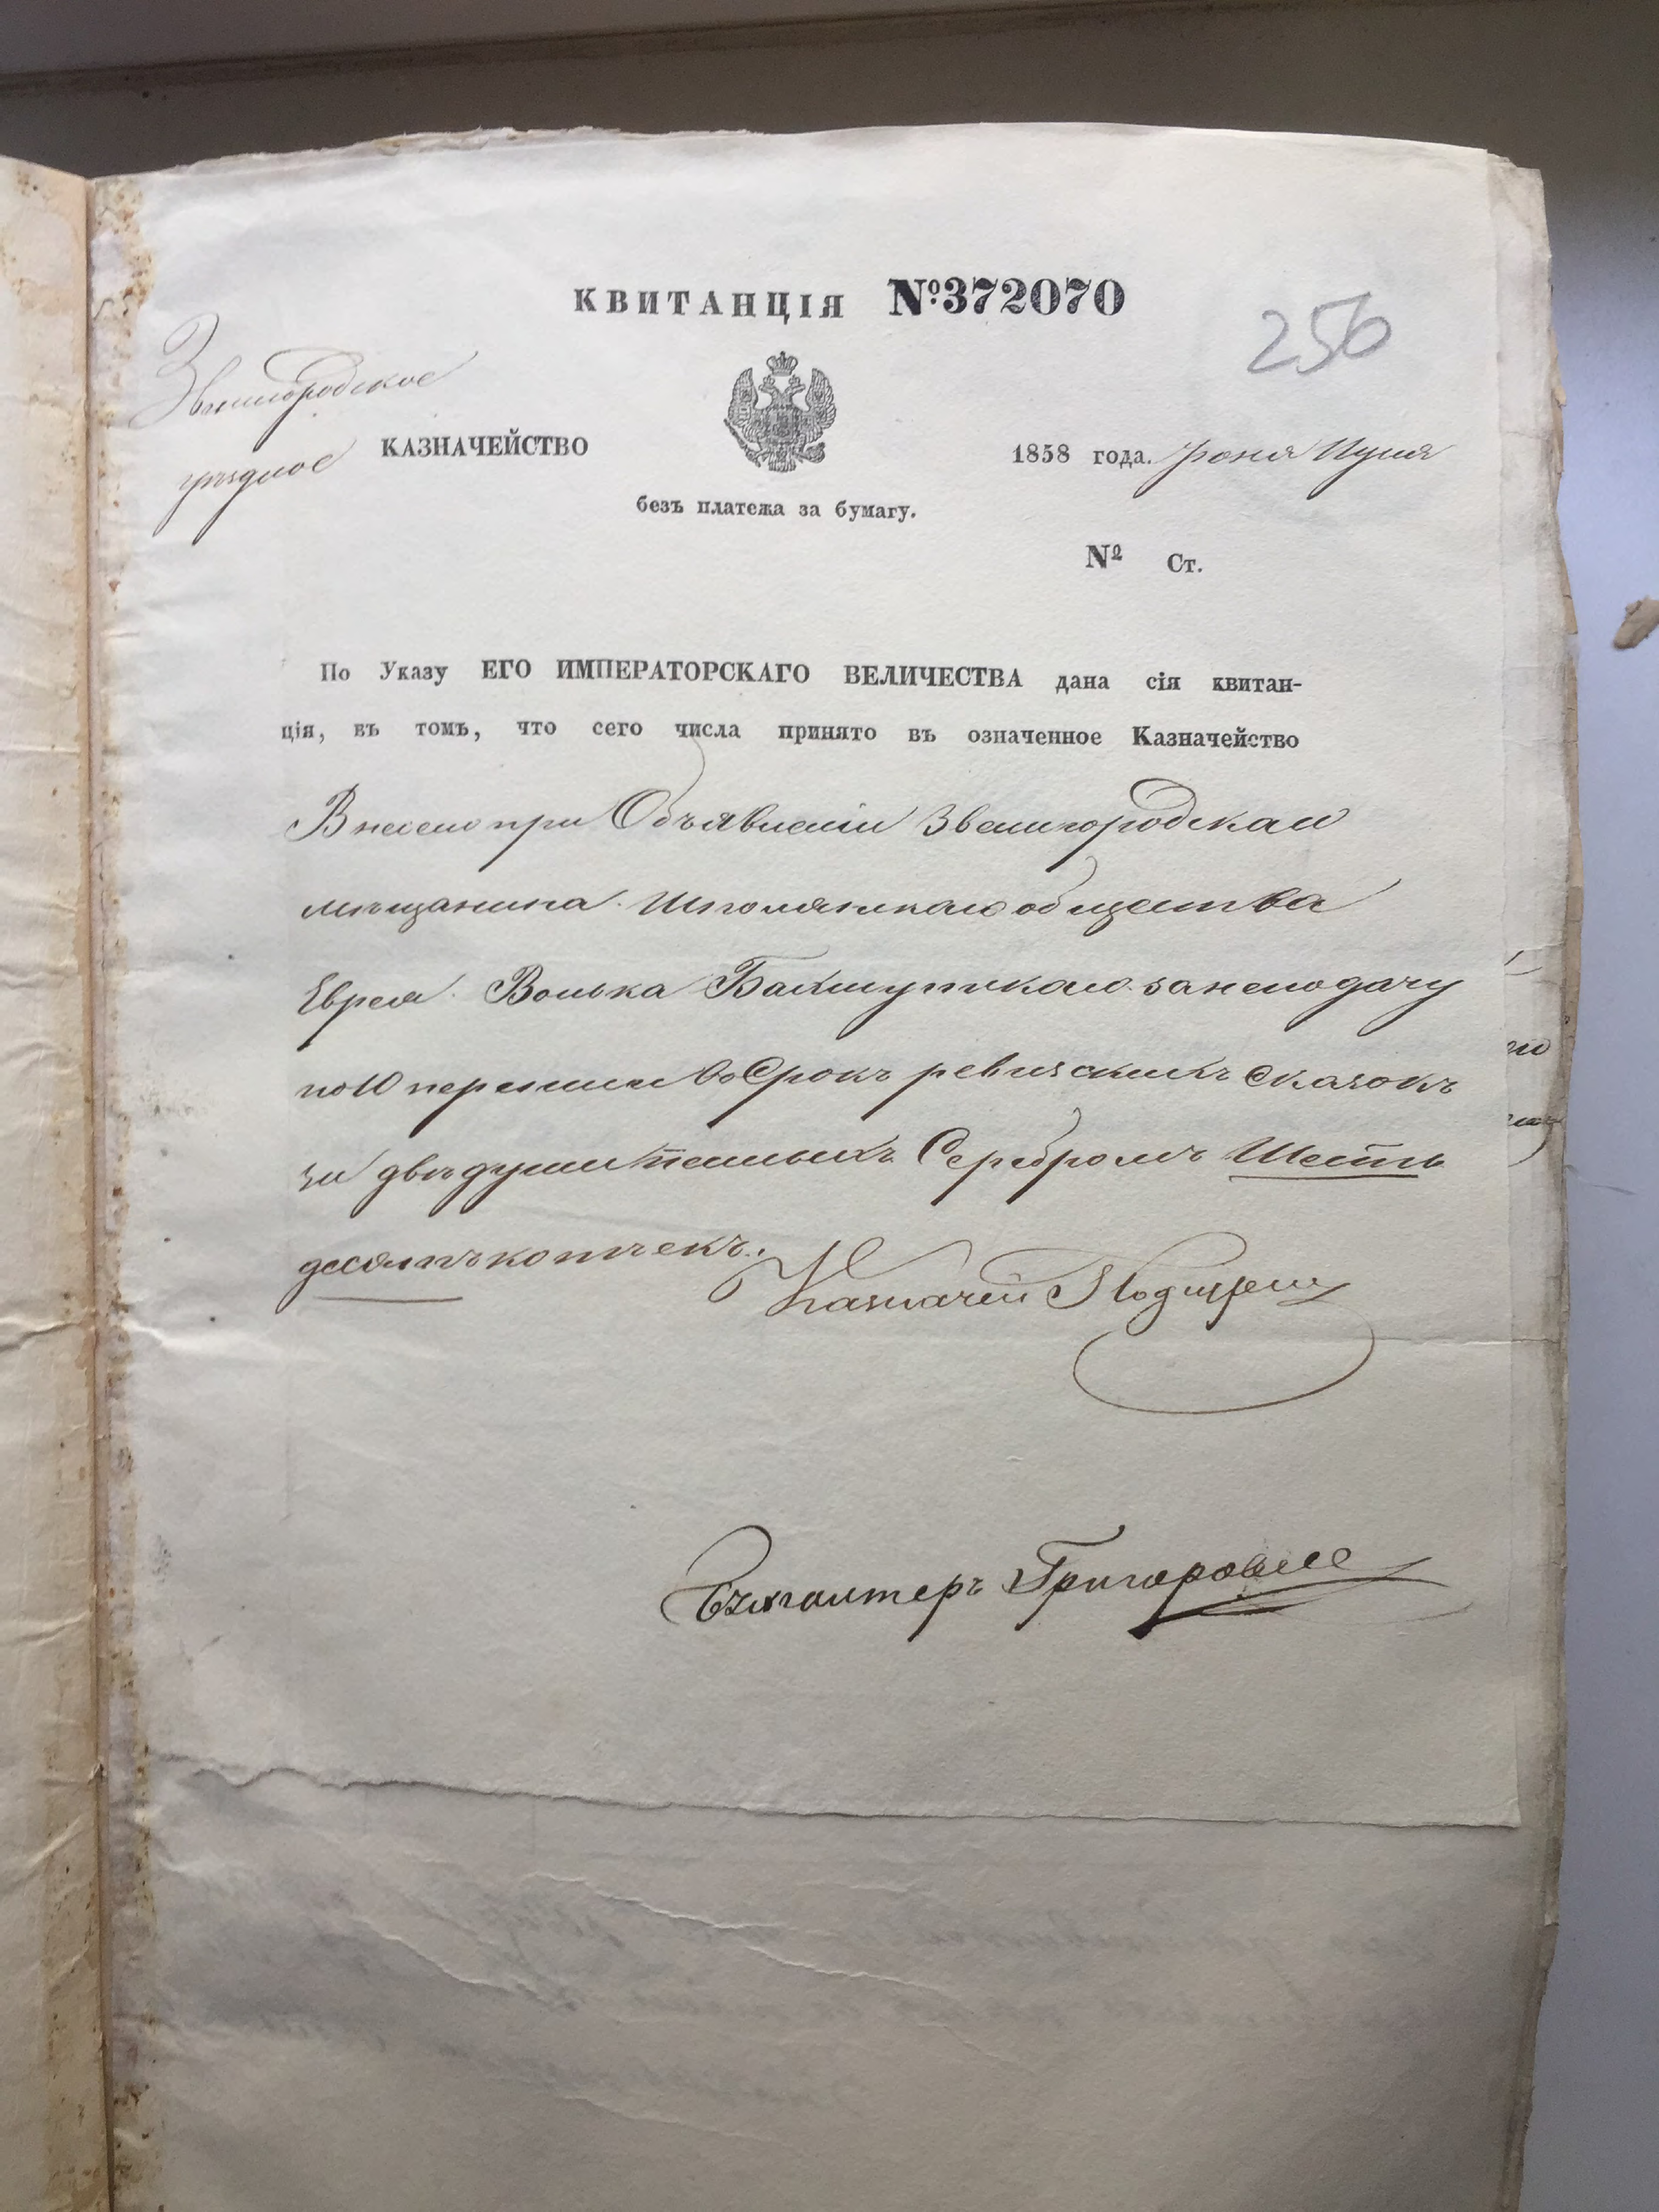 КВИТАНЦІЯ №372070
256
Звенигородское
уѣздное КАЗНАЧЕЙСТВО
1858 года. Іюля
безъ платежа за бумагу.
№ Ст.
По Указу ЕГО ИМПЕРАТОРСКАГО ВЕЛИЧЕСТВА дана сія квитан-
ція, въ томъ, что сего числа принято въ означенное Казначейство
при Объявленіи Звенигородскаго
мѣщанина Шполянскаго общества
Еврея Волька за неподачу
по 10 переписи во Срокъ ревизскихъ сказокъ
за двѣ души Серебромъ Шесть
десятъ копѣекъ.
Казначей
Бухгалтеръ Григоровичъ